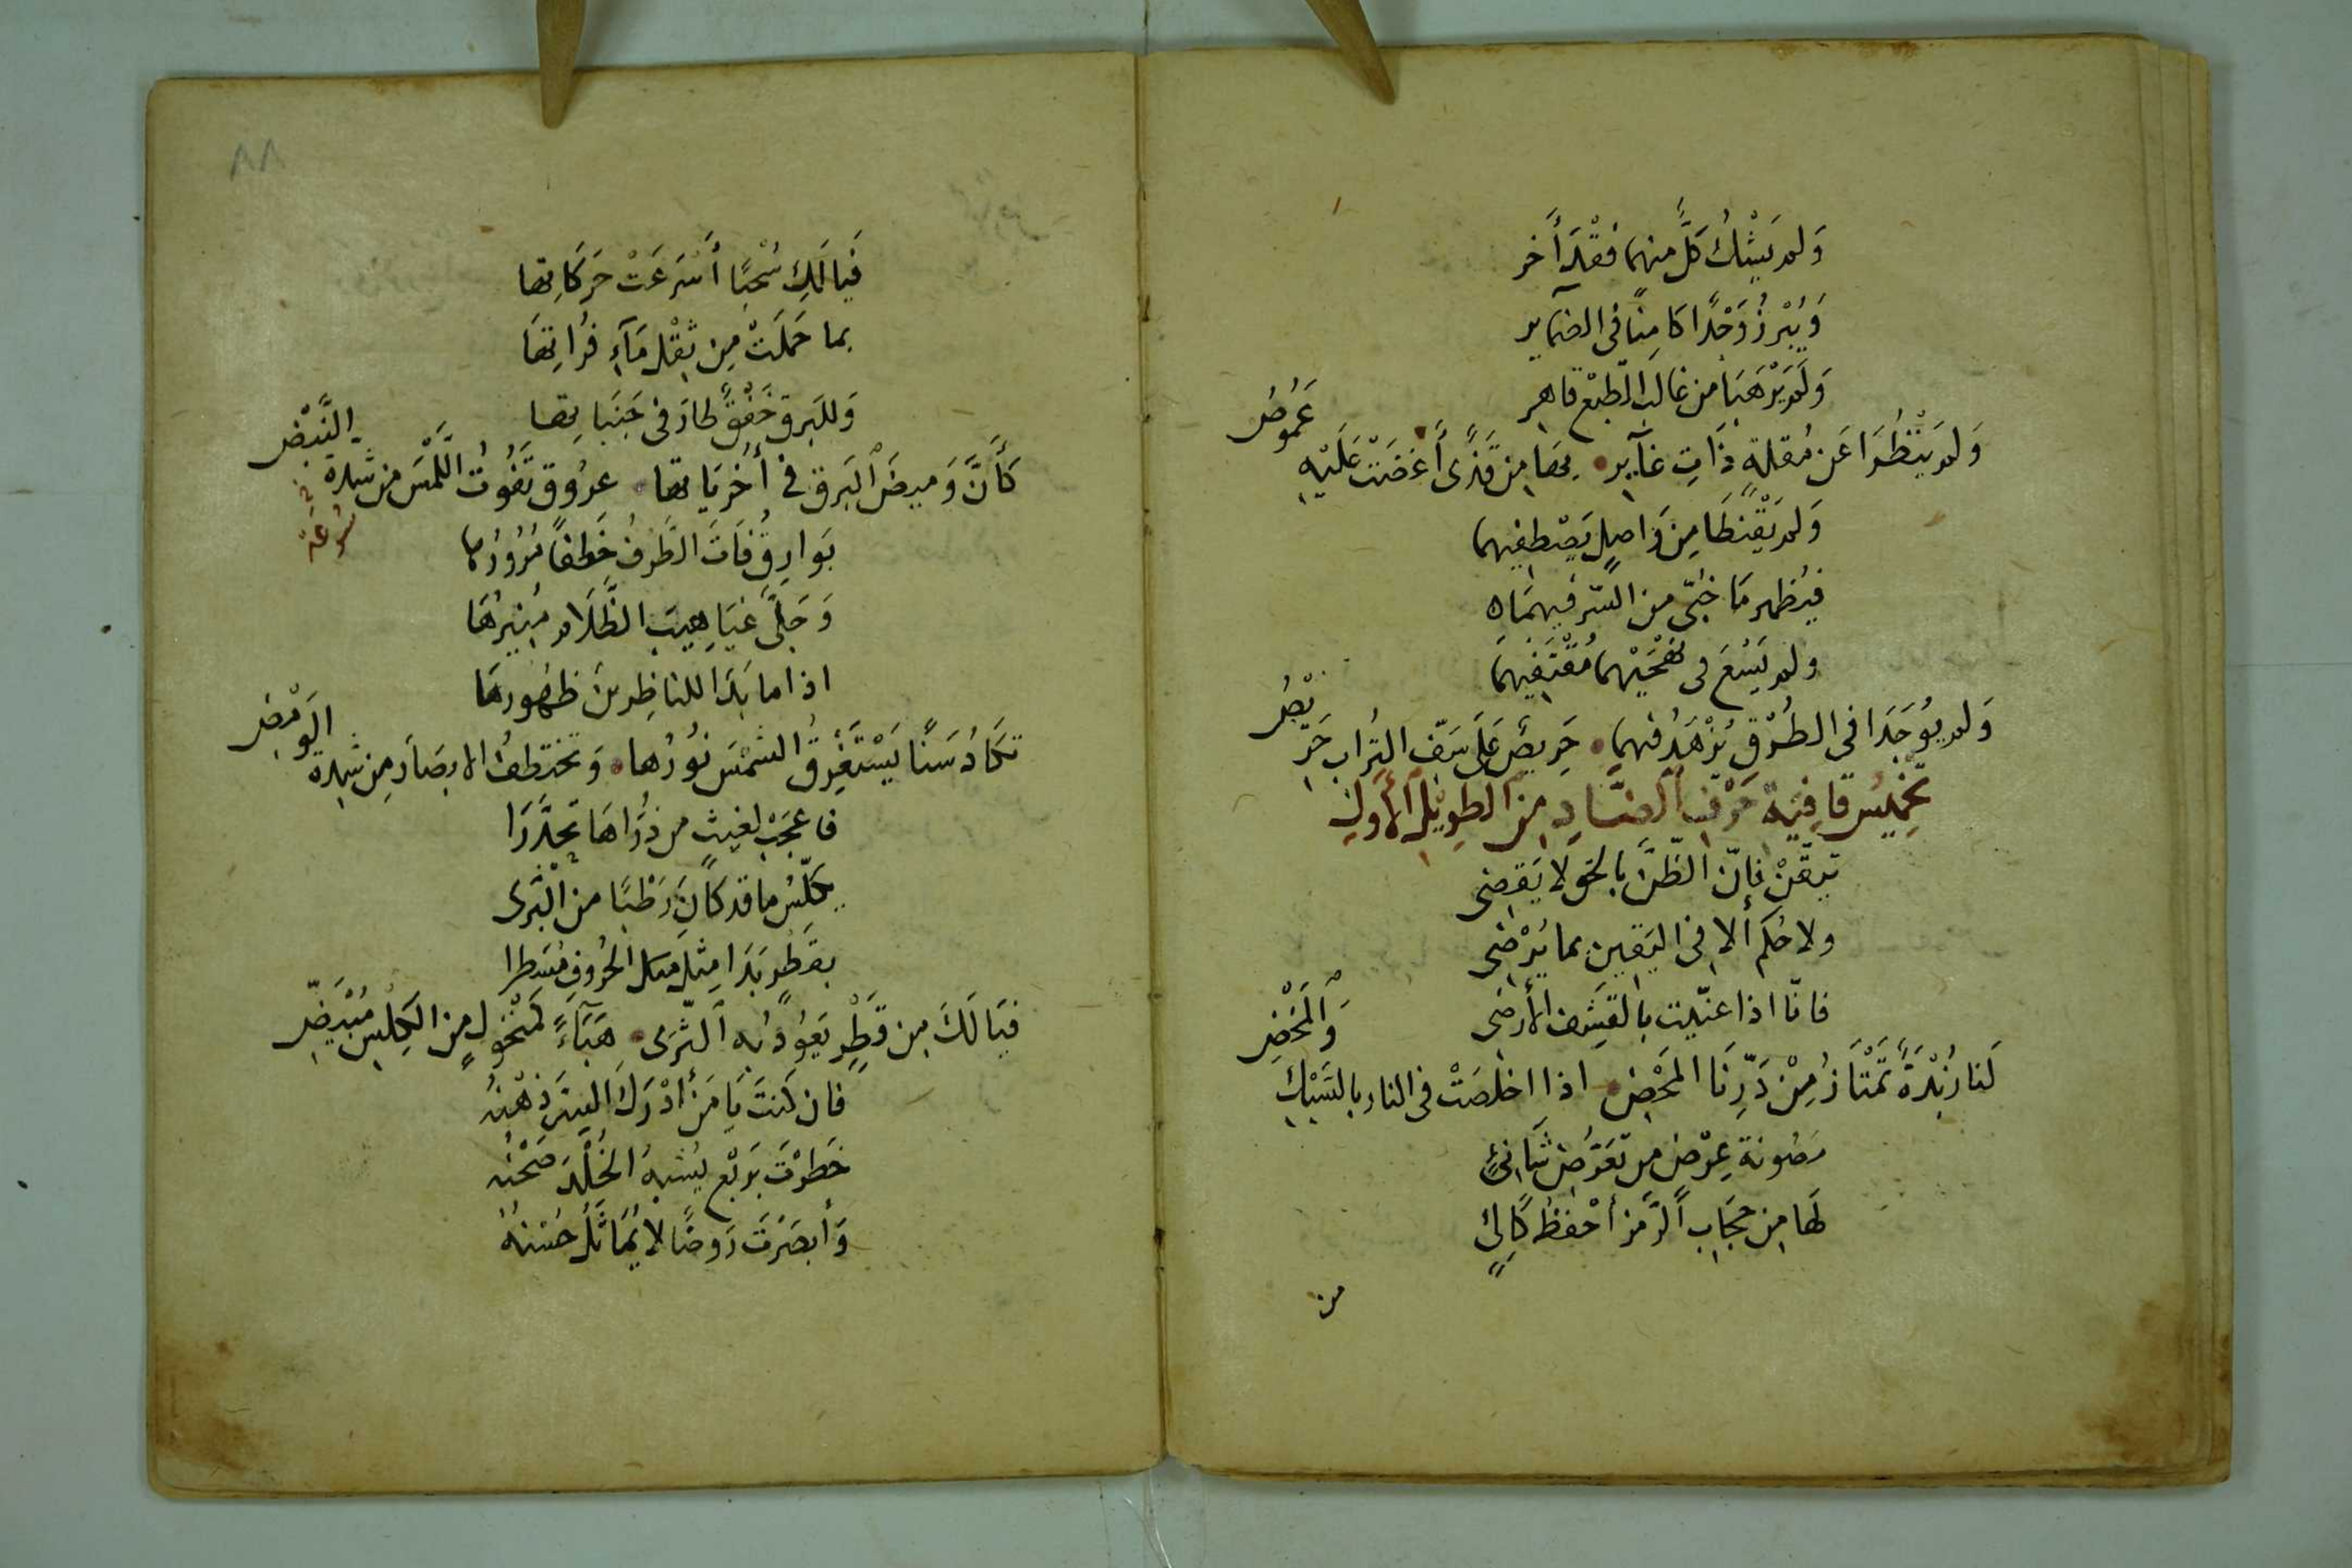 وَلم يَشْكُ كلٌّ منهما فَقْدَ أخر
وَيُبْرزُ وَجْدًا كامِنًا فى الضمآير
وَلَم يَرْهَبَا من غالب الطّبْع قاهرٍ
وَلم يَنْظُرَا عَن مُقلةٍ ذَاتِ غآيرٍ • بها مِن قَذًى أَغضَتْ عَلَيْهِ غمُوضُ
وَلم يَقْنطَا مِن وَاصِلٍ يَصْطفِيهما
فيُظهر مَا خُبّى من السّر فيهمَا
ولم يَسْعَ فى نهْجَيْهما مُقْتَفِيهمَا
وَلم يوُجَدَا فى الطُرْق يُزْهَدُ فيهما • حَرِيصٌ عَلَى سَفِّ التراب حَرِيْصُ
تخْمِيسُ قافِيَة حَرْفِ الضَّادِ مِنَ الطوِيْلِ الأوَلِ
تيقّنْ فإنّ الظَّنَّ بالحَقِ لا يَقضِى
ولا حُكمَ إلا فى اليَقين بما يُرْضِى
فانّا اذا عنّيت بالقَشَفِ الأرضى
لَنا زُبْدَةٌ تَمْتَازُ مِنْ دَرِّنَا المَحْضِ • اذا اخلصَتْ فى النار بالسَبْكِ وَالمَخْضِ
مَصُونة عِرْضٍ من تعَرّضِ شَانِئٍ
لَهَا مِن حِجَابِ الرَّمزِ أحْفظُ كَالِئٍ
من
٨٨
فَيا لَكِ سُحْبًا أَسْرَعَتْ حَرَكَاتِها
بما حَمَلَتْ مِن ثِقْلِ مَآءِ فُرَاتِهَا
وَللبَرقِ خَفْقٌ طارَ فى جَنَبَاتِها
كَأَنَّ وَمِيضَ البَرق فى أُخْرَيَاتها • عرُوق تَفُوتُ اللَّمْسَ من شدة النَّبْضِ
سُرعَة
بَوارِقُ فَاتَ الطَّرفُ خَطفًا مُرُورُها
وَجَلّى غيَاهِيبَ الظَّلَام مُنِيرُهَا
اذا ما بَدَا للناظِرينَ ظهُورهَا
تكَادُ سَنًا يَسْتَغْرِقُ الشمْسَ نوُرُها • وَتختطفُ الابصَارَ مِن شدة الوَمْضِ
فاعجَبْ لغيثٍ من ذرَاهَا تحدَّرَا
يكلّسُ ما قد كَانَ رَطْبًا من الثَّرَى
بقَطْرٍ بَدَا مِثلَ الحُروفِ مُسَطرا
فيَا لَكَ مِن قَطْرٍ يَعُودُ بِه الثَّرَى • هَبَآءً كمَنْخُولٍ مِن الكِلْسِ مُبْيَضِّ
فان كنتَ يَا مَن أدْرَكَ السِرَّ ذِهْنُه
خَطرْتَ برَبْعٍ يُشبهُ الخُلْدَ صَحْنُه
وَأبصَرتَ رَوضًا لا يُمَاثَلُ حُسْنهُ